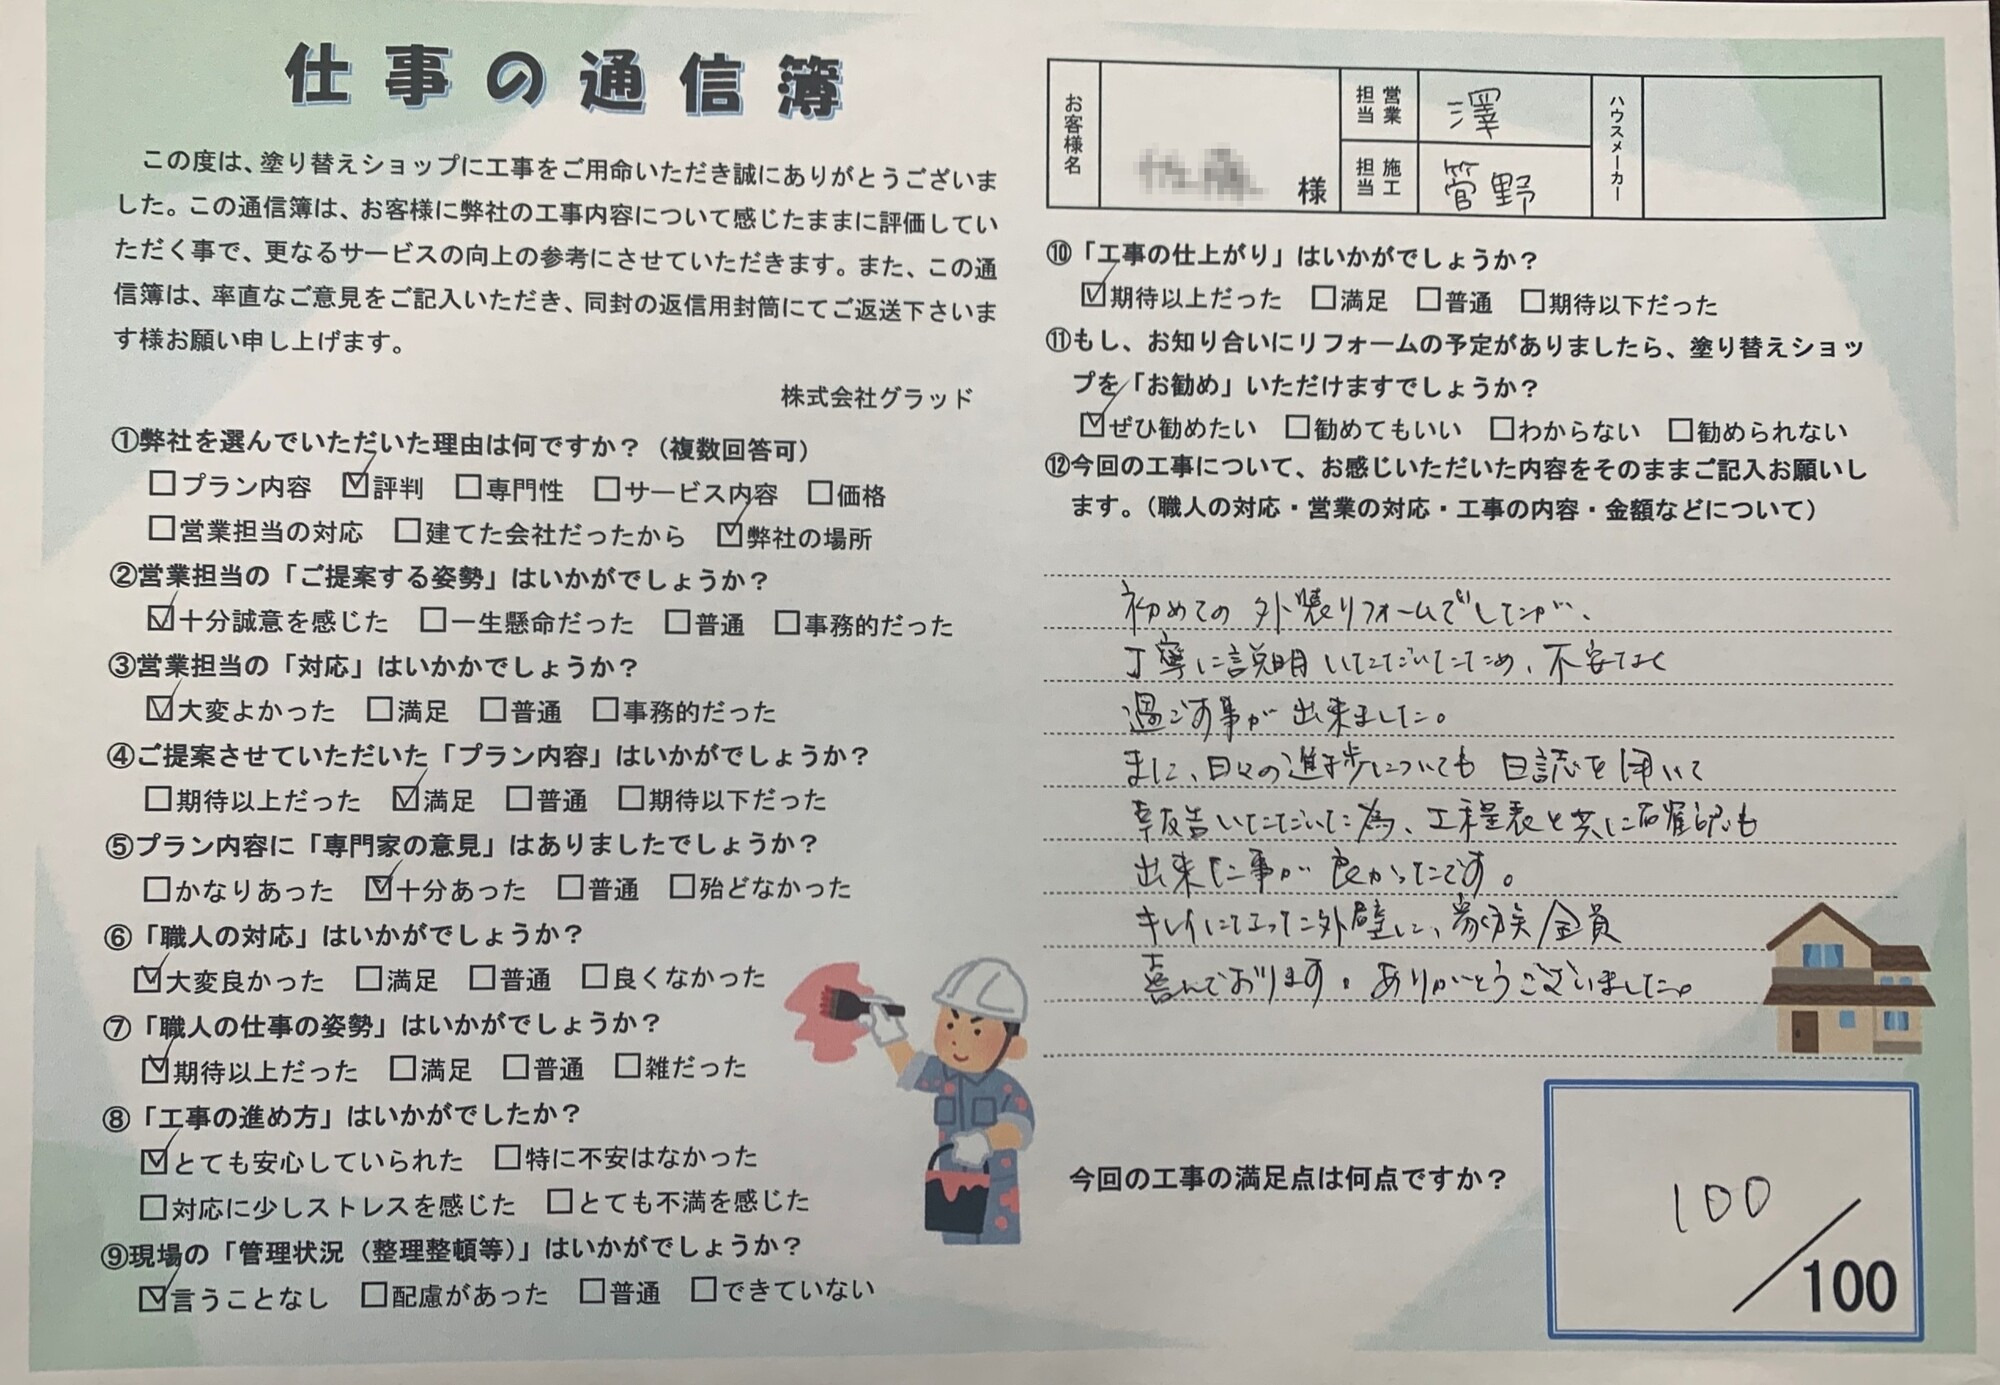 仕事の通信簿
この度は、塗り替えショップに工事をご用命いただき誠にありがとうございま
した。この通信簿は、お客様に弊社の工事内容について感じたままに評価してい
ただく事で、更なるサービスの向上の参考にさせていただきます。また、この通
信簿は、率直なご意見をご記入いただき、同封の返信用封筒にてご返送下さいま
す様お願い申し上げます。
株式会社グラッド
①弊社を選んでいただいた理由は何ですか？（複数回答可）
□プラン内容 ☑評判 □専門性 □サービス内容 □価格
□営業担当の対応 □建てた会社だったから ☑弊社の場所
②営業担当の「ご提案する姿勢」はいかがでしょうか？
☑十分誠意を感じた □一生懸命だった □普通 □事務的だった
③営業担当の「対応」はいかかでしょうか？
☑大変よかった □満足 □普通 □事務的だった
④ご提案させていただいた「プラン内容」はいかがでしょうか？
□期待以上だった ☑満足 □普通 □期待以下だった
⑤プラン内容に「専門家の意見」はありましたでしょうか？
□かなりあった ☑十分あった □普通 □殆どなかった
⑥「職人の対応」はいかがでしょうか？
☑大変良かった □満足 □普通 □良くなかった
⑦「職人の仕事の姿勢」はいかがでしょうか？
☑期待以上だった □満足 □普通 □雑だった
⑧「工事の進め方」はいかがでしたか？
☑とても安心していられた □特に不安はなかった
□対応に少しストレスを感じた □とても不満を感じた
⑨現場の「管理状況（整理整頓等）」はいかがでしょうか？
☑言うことなし □配慮があった □普通 □できていない
お客様名 様 営業担当 澤 ハウスメーカー
施工担当 菅野
⑩「工事の仕上がり」はいかがでしょうか？
☑期待以上だった □満足 □普通 □期待以下だった
⑪もし、お知り合いにリフォームの予定がありましたら、塗り替えショッ
プを「お勧め」いただけますでしょうか？
☑ぜひ勧めたい □勧めてもいい □わからない □勧められない
⑫今回の工事について、お感じいただいた内容をそのままご記入お願いし
ます。（職人の対応・営業の対応・工事の内容・金額などについて）
初めての外装リフォームでしたが、
丁寧に説明いただいたため、不安なく
過ごす事が出来ました。
また、日々の進捗についても日誌を用いて
報告いただいた為、工程表と共に確認も
出来た事が良かったです。
キレイになった外壁に、家族全員
喜んでおります。ありがとうございました。
今回の工事の満足点は何点ですか？
100/100